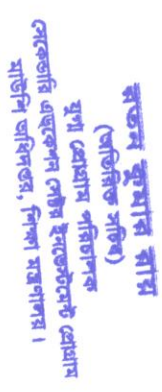 রঞ্জন কুমার রায়
(অতিরিক্ত সচিব)
যুগ্ম প্রোগ্রাম পরিচালক
সেকেন্ডারি এডুকেশন সেক্টর ইনভেস্টমেন্ট প্রোগ্রাম
মাউশি অধিদপ্তর, শিক্ষা মন্ত্রণালয়।